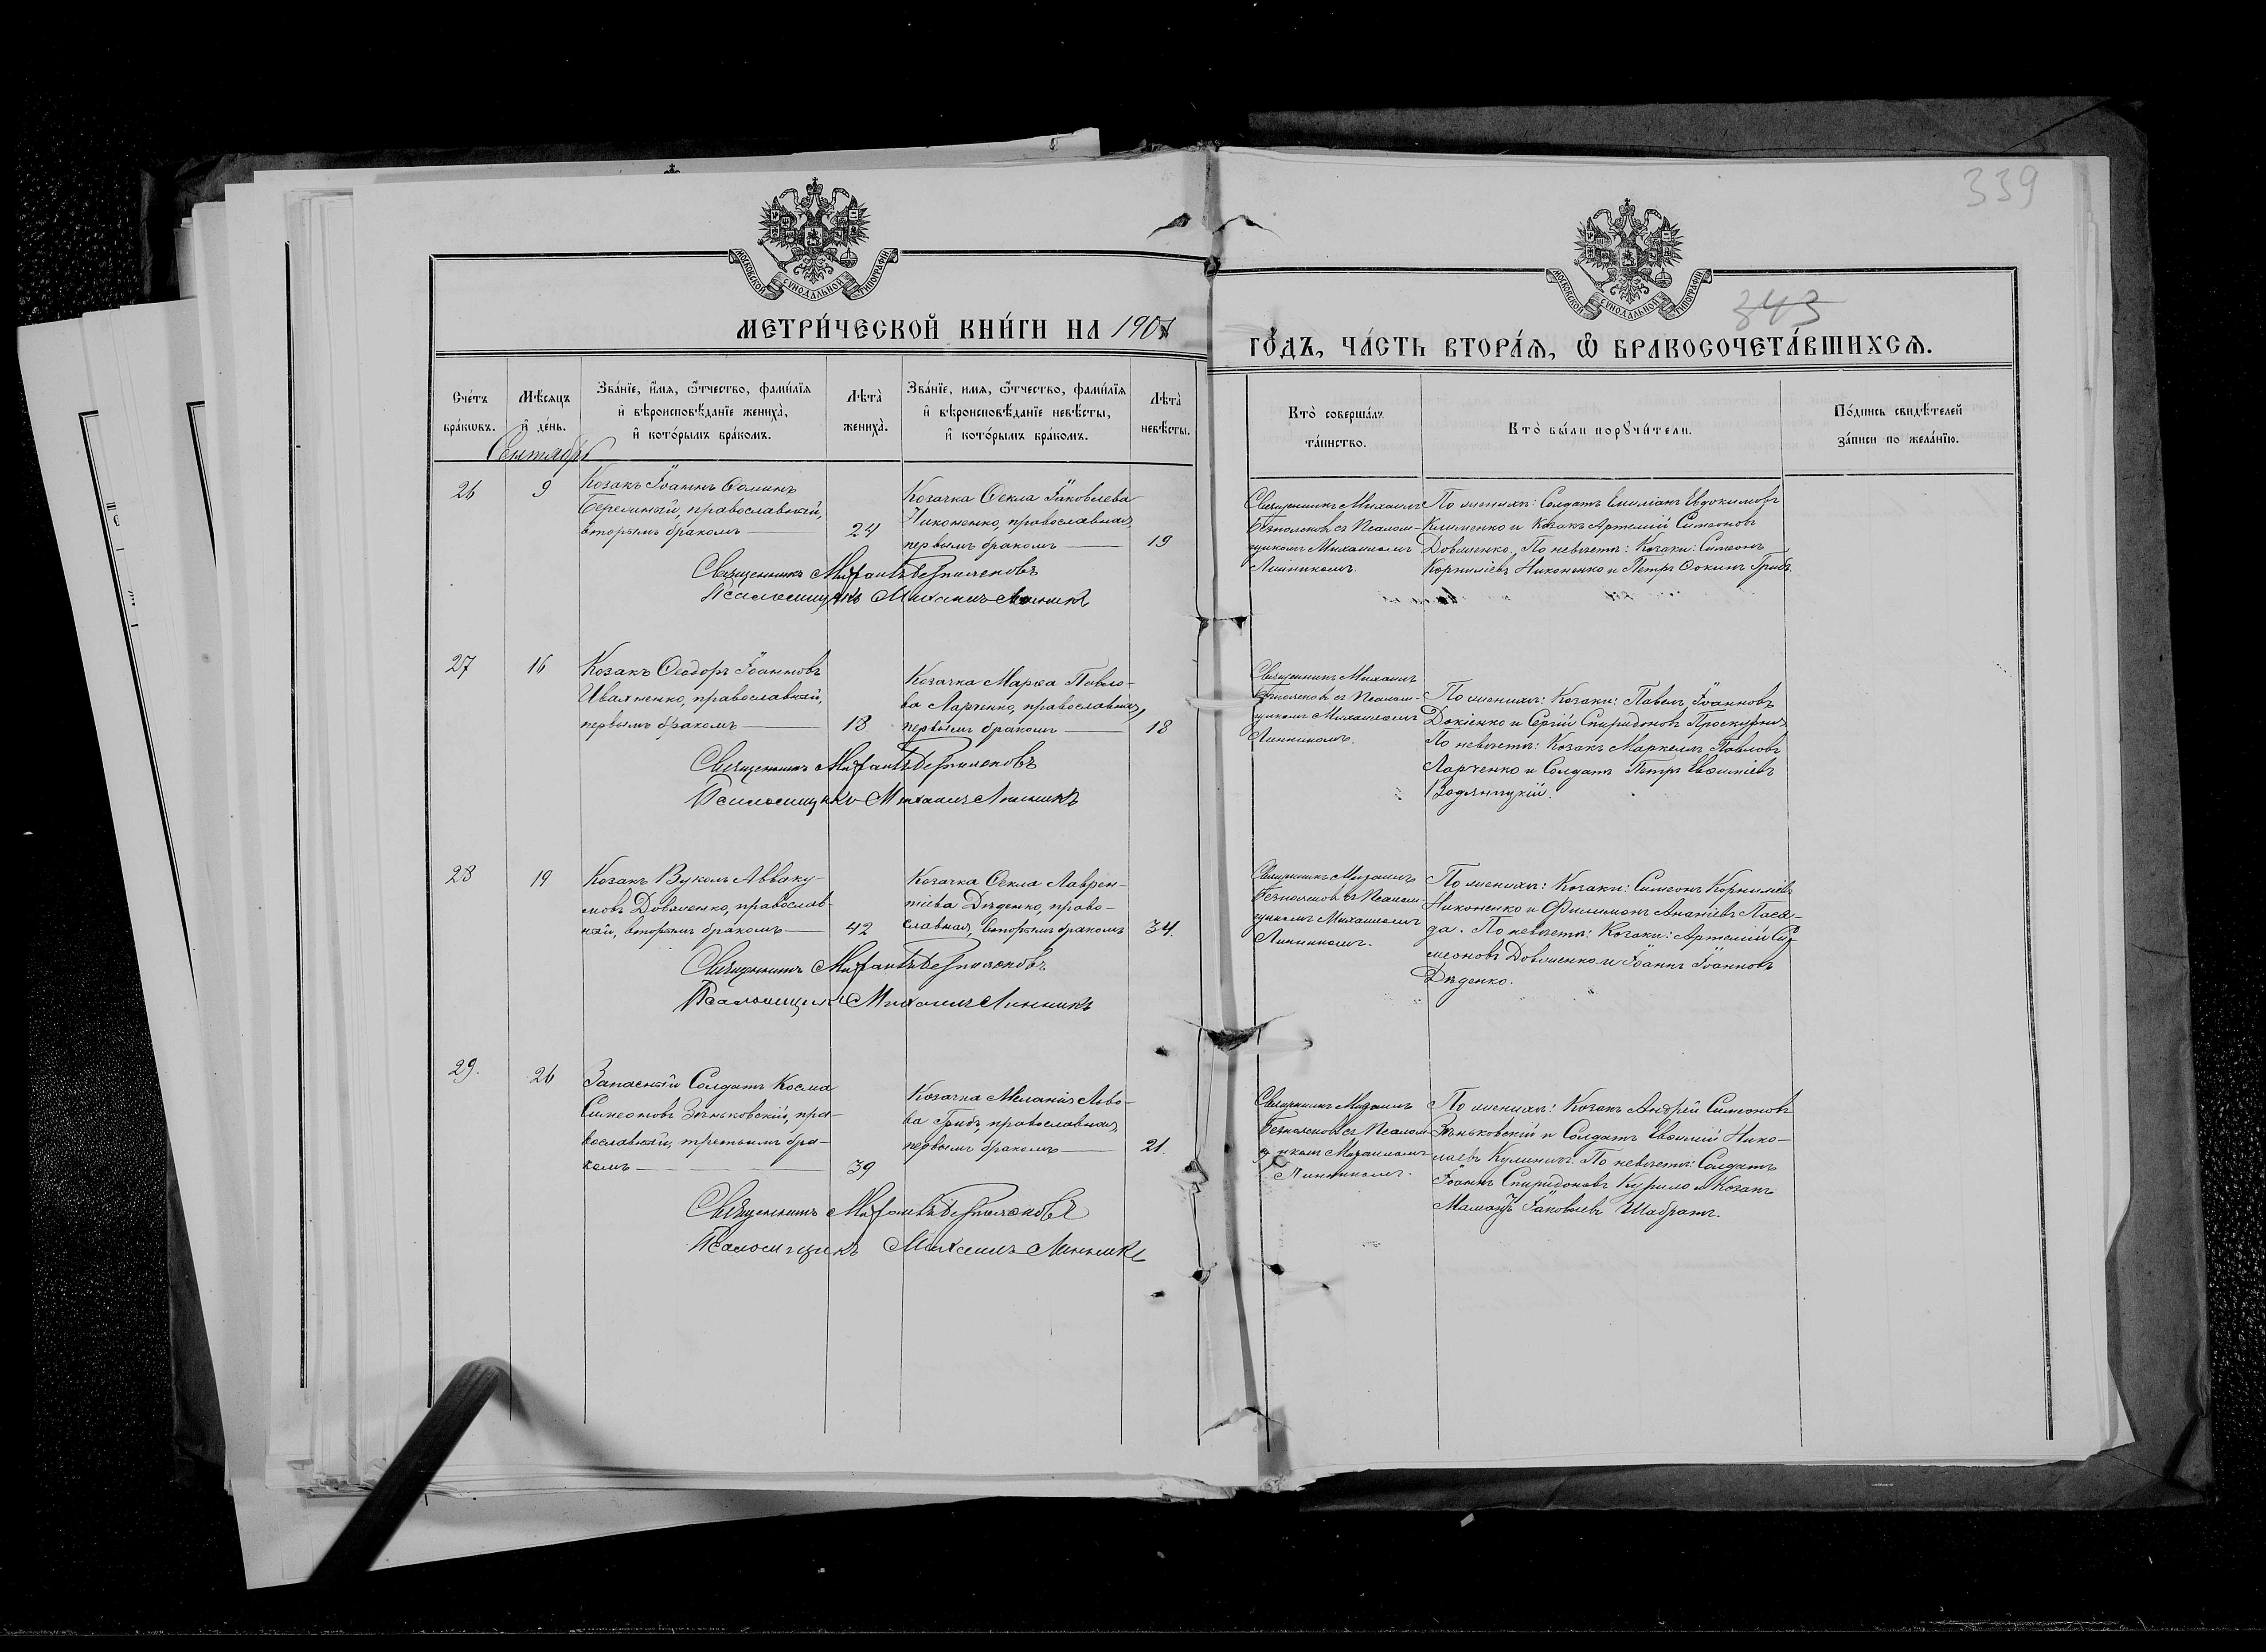 339
МОСКОВСКОЙ СѴНОДАЛЬНОЙ ТИПОГРАФІИ
МОСКОВСКОЙ СѴНОДАЛЬНОЙ ТИПОГРАФІИ
343
МЕТРИ́ЧЕСКОЙ КНИ́ГИ НА 1907
ГО́ДЪ, ЧА́СТЬ ВТОРА́Я, Ѽ БРАКОСОЧЕТА́ВШИХСЯ.
Сче́тъ
бра́ковъ.
Мѣ́сяцъ
и҆ де́нь.
Зва́нїе, и҆́мя, ѻ҆́тчество, фами́лїя
и҆ вѣроисповѣ́данїе жениха̀,
и҆ кото́рымъ бра́комъ.
Лѣта̀
жениха̀.
Зва́нїе, имя, ѻ҆́тчество, фами́лїя
и҆ вѣроисповѣ́данїе невѣ́сты,
и҆ кото́рымъ бра́комъ.
Лѣта̀
невѣ́сты.
Кто̀ соверша́лъ
та́инство.
Кто̀ бы́ли порꙋчи́тели.
По́дпись свидѣ́телей
за́писи по жела́нїю.
Сентябрь
26
9
Козакъ Іоаннъ Ѳоминъ
православный,
вторымъ бракомъ
24
Козачка Ѳекла Іаковлева
Никоненко, православная,
первымъ бракомъ
19
Священникъ Михаилъ
Безпалековъ съ Псалом-
щикомъ Михаиломъ
Линникомъ.
По женихѣ: Солдатъ Емиліанъ Евдокимовъ
Клименко и Козакъ Артемій Симеоновъ
Довженко. По невѣстѣ: Козаки: Симеонъ
Корниліевъ Никоненко и Петръ Ѳокинъ Грибъ.
Священникъ Михаилъ Безпалековъ
Псаломщикъ Михаилъ Линникъ
27
16
Козакъ Ѳеодоръ Іоанновъ
Иваненко, православный,
первымъ бракомъ
18
Козачка Марѳа Павло-
ва Ларченко, православная,
первымъ бракомъ
18
Священникъ Михаилъ
Безпалековъ съ Псалом-
щикомъ Михаиломъ
Линникомъ.
По женихѣ: Козаки: Павелъ Іоанновъ
Докіенко и Сергій Спиридоновъ Проскурня.
По невѣстѣ: Козакъ Маркеллъ Павловъ
Ларченко и Солдатъ Петръ Евѳиміевъ
Водяницкій.
Священникъ Михаилъ Безпалековъ
Псаломщикъ Михаилъ Линникъ
28
19
Козакъ Вуколъ Авваку-
мовъ Довженко, православ-
ный, вторымъ бракомъ
42
Козачка Ѳекла Лаврен-
тіева Дѣденко, право-
славная, вторымъ бракомъ
34.
Священникъ Михаилъ
Безпалековъ съ Псалом-
щикомъ Михаиломъ
Линникомъ.
По женихѣ: Козаки: Симеонъ Корниліевъ
Никоненко и Филимонъ Ананіевъ
да. По невѣстѣ: Козаки: Артемій Си-
меоновъ Довженко и Іоаннъ Іоанновъ
Дѣденко.
Священникъ Михаилъ Безпалековъ
Псаломщикъ Михаилъ Линникъ
29.
26
Запасный Солдатъ Косма
Симеоновъ Зѣньковскій, пра-
вославный, третьимъ бра-
комъ
39
Козачка Меланія Льво-
ва Грибъ, православная,
первымъ бракомъ
21.
Священникъ Михаилъ
Безпалековъ съ Псалом-
щикомъ Михаиломъ
Линникомъ.
По женихѣ: Козакъ Андрей Симеоновъ
Зѣньковскій и Солдатъ Евѳимій Нико-
лаевъ Кулиничъ. По невѣстѣ: Солдатъ
Іоаннъ Спиридоновъ Курило и Козакъ
Іаковлевъ Шабратъ.
Священникъ Михаилъ Безпалековъ
Псаломщикъ Михаилъ Линникъ